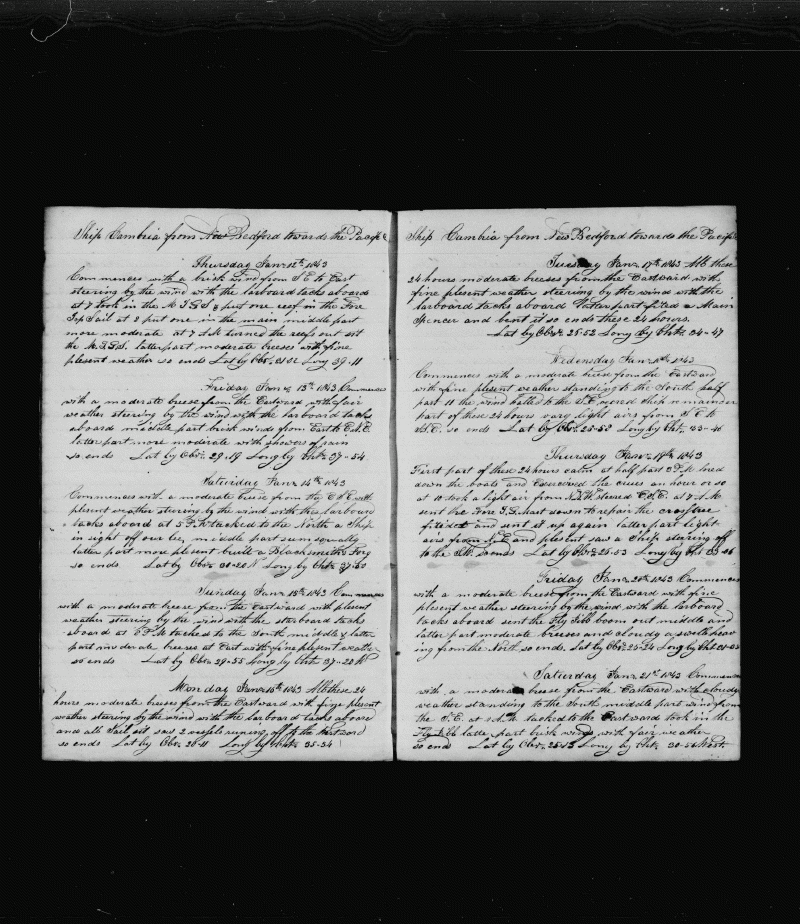 Ship Cambria from New Bedford towards the Pacific
Thursday Janr 12th 1843
Commences with a brisk wind from S E to East
steering by the wind with the larboard tacks aboard
at 7 took in the M T G S & put one reef in the Fore
Top Sail at 8 put one in the main middle part
more moderate at 7 A M turned the reefs out set
the M. T. G. S. latter part moderate breeses with fine
plesent weather so ends Lat by Obr. Long 39-11
Friday Janr 13th 1843 Commences
with a moderate breese from the Eastward with fair
weather steering by the wind with the larboard tacks
aboard middle part brisk winds from East to E.N.E.
latter part more moderate with showers of rain
so ends Lat by Obr. 29-19 Long by Chr. 37-54
Saturday Janr 14th 1843
Commences with a moderate breese from the E.N.E with
plesent weather steering by the wind with the larbourd
tacks aboard at 5 P.M tacked to the North a Ship
in sight off our lee, middle part sum squally
latter part more plesent built a Blacksmiths Forg
so ends Lat by Obr. 30-20 N Long by Chr. 37-50
Sunday Janr 15th 1843 Commences
with a moderate breese from the Eastward with plesent
weather steering by the wind with the starboard tacks
aboard at 6 P.M tacked to the South middle & latter
part moderate breeses at East with fine plesent weather
so ends Lat by Obr. 29-55 Long by Chr. 37-28 W
Monday Janr 16th 1843 All these 24
hours moderate breeses from the Eastward with fine plesent
weather steering by the wind with the larboard tacks aboard
and all Sail set saw 2 vessels runing off to the Westward
so ends Lat by Obr. 28-11 Long by Chr. 35-34
Ship Cambria from New Bedford towards the Pacific
Tuesday Janr 17th 1843 All these
24 hours moderate breeses from the Eastward with
fine plesent weather steering by the wind with the
larboard tacks aboard Watter part fitted a Main
Spencer and bent it so ends these 24 hours.
Lat by Obr. 25-52 Long by Chr. 34-47
Wedensday Janr 18th 1843
Commences with a moderate breese from the Eastward
with fine plesent weather standing to the South half
past 11 the wind halled to the S.E. wered ship remainder
part of these 24 hours vary light airs from S E to
S.E. so ends Lat by Obr. 25-52 Long by Chr.
Thursday Janr 19th 1843
First part of these 24 hours calm at half past 3 P.M lored
down the boats and Exercised the crues an hour or so
at 10 took a light air from N.N.W steered E.S.E. at 7 A.M
sent the Fore T.G. Mast down to repair the crosstree
fitted it and sent it up again latter part light
airs from and plesent saw a Ship steering off
to the SW. so ends Lat by Obr. 25-53 Long by Chr 33-26
Friday Janr 20th 1843 Commences
with a moderate breese from the Eastward with fine
plesent weather steering by the wind with the larboard
tacks aboard sent the Fly Jibb boom out middle and
latter part moderate breeses and cloudy a swell heav
ing from the North, so ends, Lat by Obr. 25-24 Long by Chr.
Saturday Janr 21st 1843 Commences
with a moderate breese from the Eastward with cloudy
weather standing to the South middle part wind from
the S.E. at A.M. tacked to the Eastward took in the
Fly Jibb latter part brisk winds with fair weather
so ends Lat by Obr. 25-13 Long by Chr. 30-54 West.